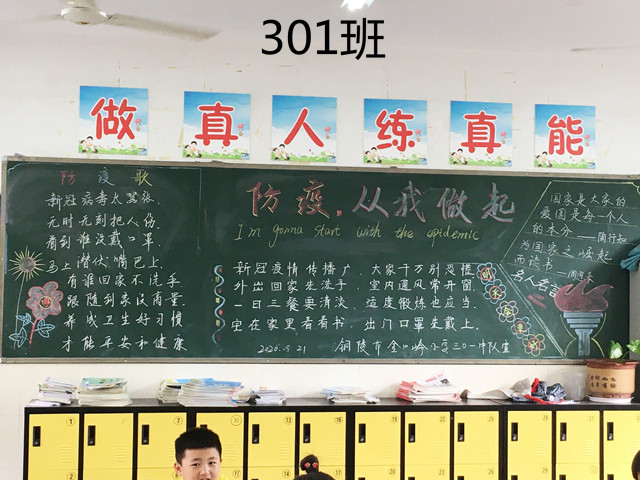 301班
做真人练真能
防疫歌
新冠病毒太嚣张
无时无刻把人伤.
看到谁没戴口罩.
马上潜伏嘴巴上.
有谁回家不洗手
跟随到桌没商量.
养成卫生好习惯
才能平安和健康
防疫,从我做起
I'm gonna start with the epidemic
新冠疫情传播广,大家千万别恐慌
外出回家先洗手,室内通风常开窗.
一日三餐要清淡,适度锻炼也应当.
宅在家里看看书,出门口罩先戴上.
2020.5.21
国家是大家的
爱国是每个人
的本分——陶行知
为国家之崛起
而读书——周恩来
名人名言
①